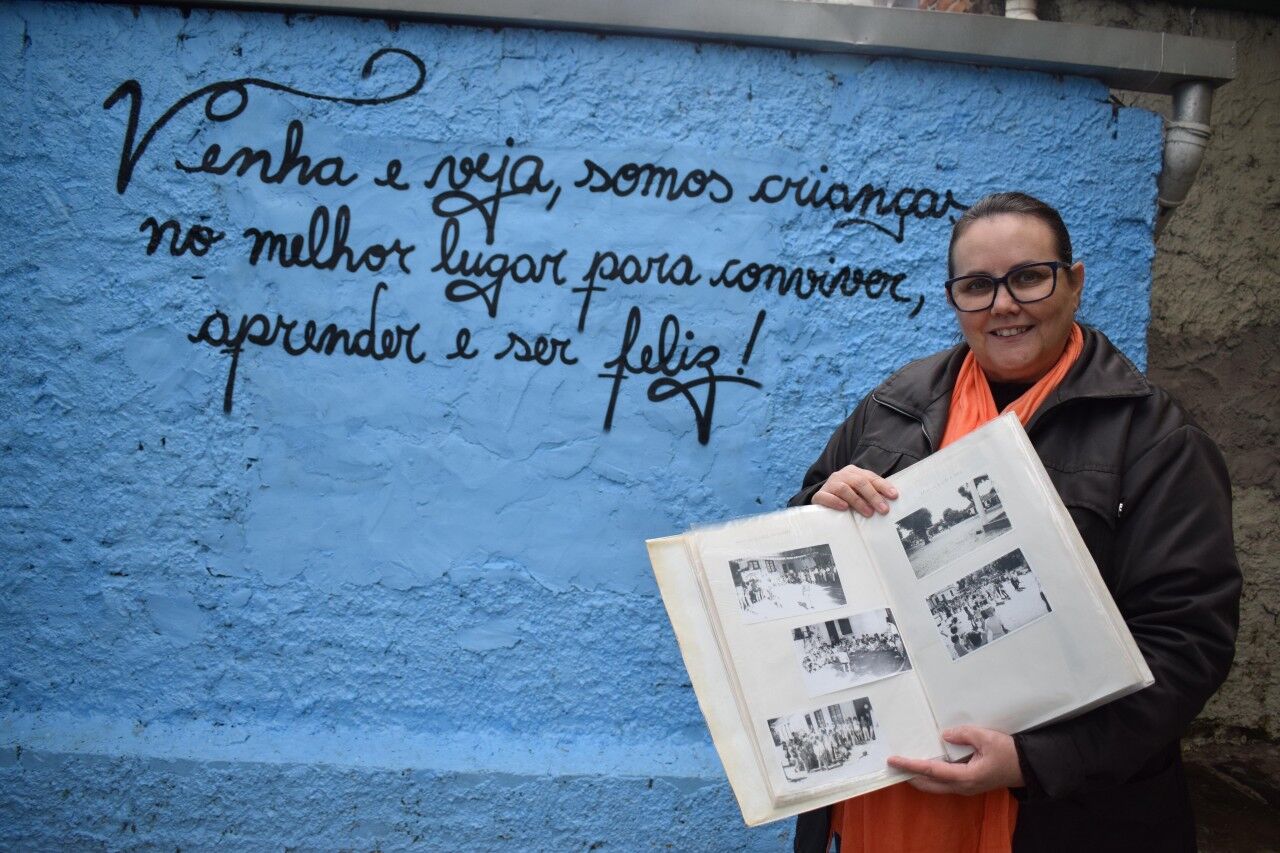 Venha e veja, somos crianças,
no melhor lugar para conviver,
aprender e ser feliz!